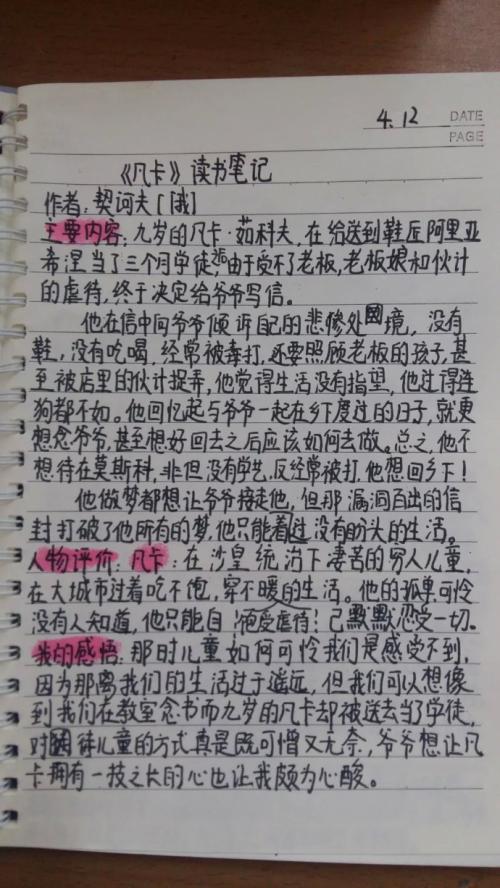 4.12 DATE
PAGE
《凡卡》读书笔记
作者:契诃夫[俄]
主要内容:九岁的凡卡·茹科夫,在给送到鞋匠阿里亚
希涅当了三个月学徒,由于受不了老板,老板娘和伙计
的虐待,终于决定给爷爷写信。
他在信中向爷爷倾诉自己的悲惨处境,没有
鞋,没有吃喝,经常被毒打,还要照顾老板的孩子,甚
至被店里的伙计捉弄,他觉得生活没有指望,他过得连
狗都不如。他回忆起与爷爷一起在乡下度过的日子,就更
想念爷爷,甚至想好回去之后应该如何去做。总之,他不
想待在莫斯科,非但没有学艺,反经常被打,他想回乡下!
他做梦都想让爷爷接走他,但那漏洞百出的信
封打破了他所有的梦,他只能着过没有盼头的生活。
人物评价:凡卡:在沙皇统治下凄苦的穷人儿童,
在大城市过着吃不饱,穿不暖的生活。他的孤单可怜
没有人知道,他只能自己默默忍受一切。
我的感悟:那时儿童如何可怜我们是感受不到,
因为那离我们的生活过于遥远,但我们可以想像
到我们在教室念书而九岁的凡卡却被送去当了学徒,
对待儿童的方式真是既可憎又无奈,爷爷想让凡
卡拥有一技之长的心也让我颇为心酸。